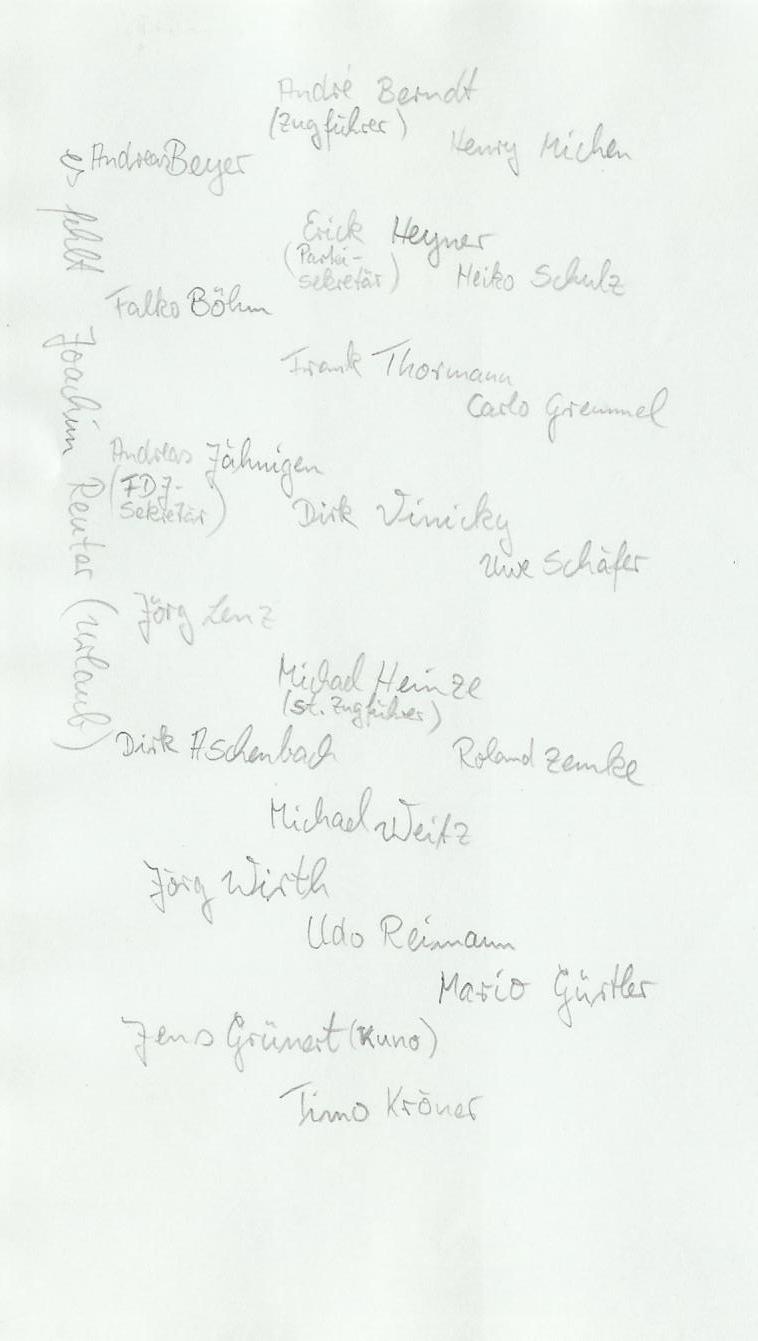 André Berndt
(Zugführer)
Henry Michen
Andreas Beyer
Erick Heyner
(Partei-
sekretär)
Heiko Schulz
Falko Böhm
Frank Thormann
Carlo Gremmel
Andreas Jähnigen
(FDJ-
Sekretär)
Dirk Vinicky
Uwe Schäfer
Jörg Lenz
Michael Heinze
(st. Zugführer)
Dirk Aschenbach
Roland Zemke
Michael Weitz
Jörg Wirth
Udo Reimann
Mario Gürtler
Jens Grünert (Kuno)
Timo Kröner
es fehlt Joachim Reuter (Urlaub)